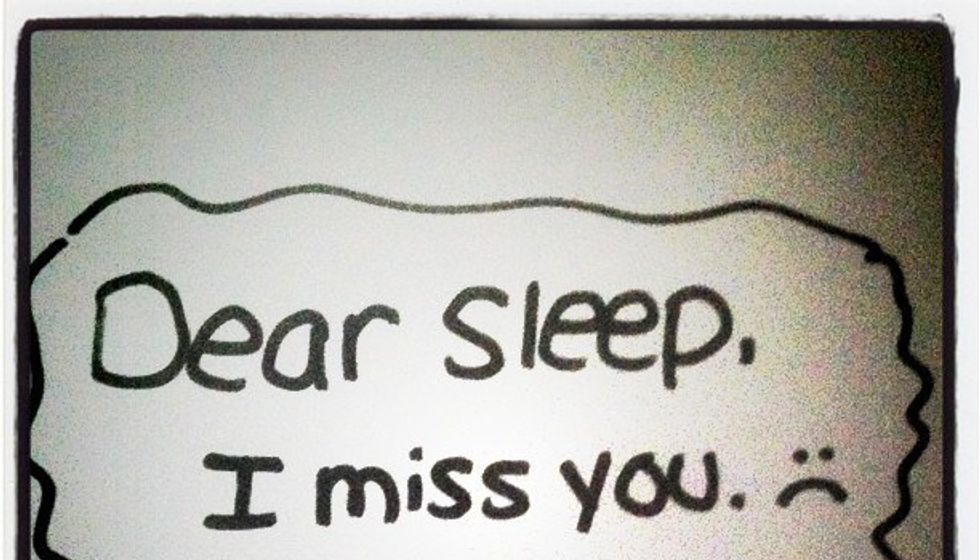 Dear sleep,
I miss you. :(